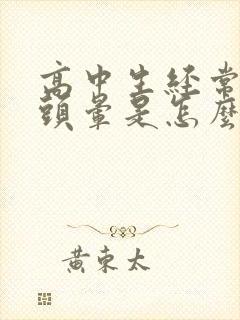 高中生經常
頭暈是怎麼
黃東太